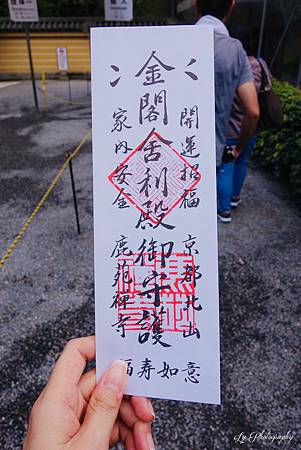 開運招福 京都北山
金閣舎利殿御守護
家内安全 鹿苑禅寺
如意
福寿
Ly. Photography